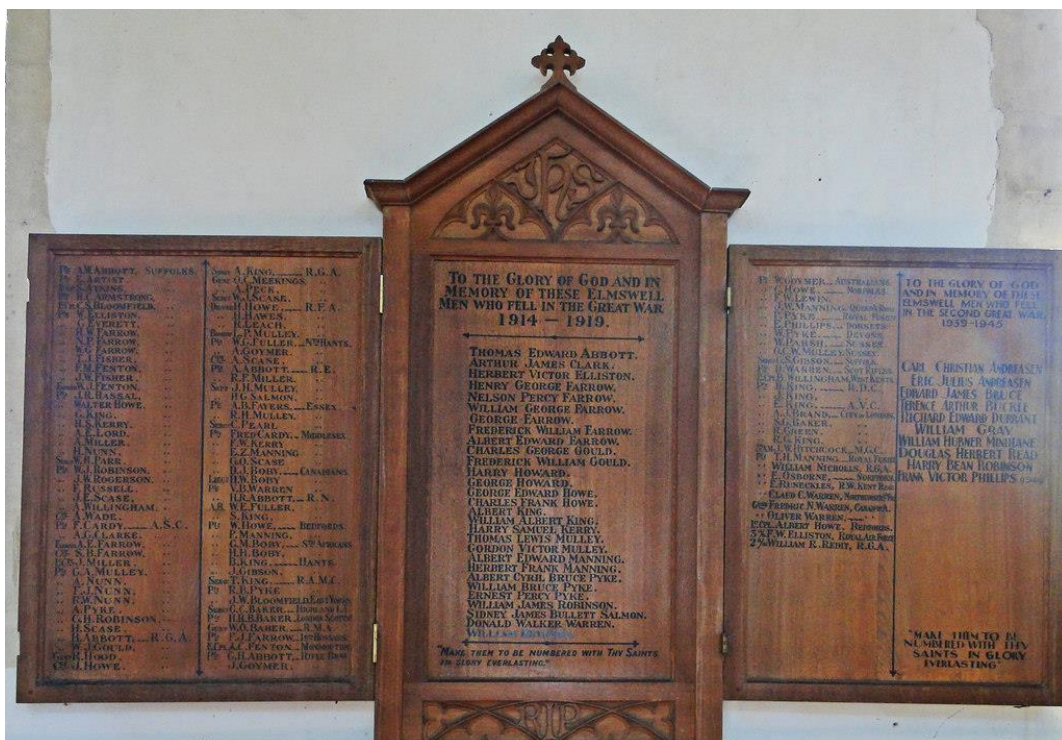 Pte A.W. ABBOTT, SUFFOLKS.
F. ARTIST
S. ATKINS
F.C. ARMSTRONG.
C.S. BLOOMFIELD.
Pte W. ELLISTON.
G. EVERETT.
H.W. FARROW.
N.P. FARROW.
W.G. FARROW.
F.J. FISHER.
F.M. FENTON.
J.W. FISHER.
W.J. FENTON.
Pte J.R. HASSAL.
WALTER HOWE.
G. KING.
H.S. KERRY.
A.E. LORD.
A. MILLER.
H. NUNN.
W.H. PARR.
Pte W.J. ROBINSON.
J.W. ROGERSON.
F. RUSSELL.
J.E. SCASE.
A. WILLINGHAM.
A. WADE.
Pte F. CARDY. A.S.C.
A.G. CLARKE.
A.E. FARROW.
S.B. FARROW.
J. MILLER.
Pte G.A. MULLEY.
A. NUNN.
F.J. NUNN.
R.W. NUNN.
A. PYKE.
G.H. ROBINSON.
H. SCASE.
H. ABBOTT, R.G.A.
W.J. GOULD.
R. HOOD.
J. HOWE.
A. KING. R.G.A.
O.C. MEEKINGS.
A. PECK.
W.J. SCASE.
H. HOWE. R.F.A.
J. HAWES.
H. LEACH.
L.P. MULLEY.
Pte W.G. FULLER. NTH HANTS.
A. GOYMER.
A. SCASE.
Pte A. ABBOTT. R.E.
R.F. MILLER.
J.H. MULLEY.
H.G. SALMON.
Pte A.B. FAYERS. ESSEX.
R.H. MULLEY.
C. PEARL
Pte FRED CARDY. MIDDLESEX
F.W. KERRY
E.Z. MANNING
G.O. SCASE
D.J. BOBY. CANADIANS.
H.W. BOBY
Pte V.B. WARREN
H.R. ABBOTT. R.N.
A.B. W.E. FULLER.
S. KING.
Pte W. HOWE. BEDFORDS.
P. MANNING.
G.M. BOBY. STH AFRICANS
H.H. BOBY.
B. KING. HANTS.
J. GIBSON.
T. KING. R.A.M.C.
Pte R.B. PYKE
J.W. BLOOMFIELD, EAST YORKS
G.C. BAKER. HIGHLAND L.I.
Pte H.R.B. BAKER. LONDON SCOTTISH
W.O. BAKER. R.M.A.
Pte F.J. FARROW.
A.C. FENTON. MONMOUTHS
Pte G.H. ABBOTT. RIFLE BDE
J. GOYMER.
IHS
TO THE GLORY OF GOD AND IN
MEMORY OF THESE ELMSWELL
MEN WHO FELL IN THE GREAT WAR
1914 — 1919.
THOMAS EDWARD ABBOTT.
ARTHUR JAMES CLARK.
HERBERT VICTOR ELLISTON.
HENRY GEORGE FARROW.
NELSON PERCY FARROW.
WILLIAM GEORGE FARROW.
GEORGE FARROW.
FREDERICK WILLIAM FARROW.
ALBERT EDWARD FARROW.
CHARLES GEORGE GOULD.
FREDERICK WILLIAM GOULD.
HARRY HOWARD.
GEORGE HOWARD.
GEORGE EDWARD HOWE.
CHARLES FRANK HOWE.
ALBERT KING.
WILLIAM ALBERT KING.
HARRY SAMUEL KERRY.
THOMAS LEWIS MULLEY.
GORDON VICTOR MULLEY.
ALBERT EDWARD MANNING.
HERBERT FRANK MANNING.
ALBERT CYRIL BRUCE PYKE.
WILLIAM BRUCE PYKE.
ERNEST PERCY PYKE.
WILLIAM JAMES ROBINSON.
SIDNEY JAMES BULLETT SALMON.
DONALD WALKER WARREN.
WILLIAM
"MAKE THEM TO BE NUMBERED WITH THY SAINTS
IN GLORY EVERLASTING."
RIP
Pte W. GOYMER. AUSTRALIANS.
C. HOWE. NORFOLKS.
F.W. LEWIN.
F.W. MANNING.
F. PARR. ROYAL FUSRS
E. PHILLIPS. DORSETS
R. PYKE. DEVONS
W. PARSH. SURREY
O.C.W. MULLEY. SUSSEX.
C.S. GIBSON. SUFFOLK
Pte D. WARREN. SCOT RIFLES.
B. WILLINGHAM, WEST KENTS.
B. KING. R.D.C.
J. KING.
E. KING. A.V.C.
A.J. BRAND. CITY OF LONDON.
S.G. BAKER.
E. GREEN.
R.G. KING.
J.W. HITCHCOCK. M.G.C.
Pte T.H. MANNING. ROYAL FUSRS
WILLIAM NICHOLLS, R.G.A.
E. OSBORNE.
E. RUNECKLES, R.W. KENT REGT
CLAUD C. WARREN,
FREDRIC N. WARREN, CANADN A.
OLIVER WARREN.
ALBERT HOWE. BEDFORDS.
F.W. ELLISTON, ROYAL AIR FORCE
WILLIAM R. REDIT, R.G.A.
TO THE GLORY OF GOD
AND IN MEMORY OF THESE
ELMSWELL MEN WHO FELL
IN THE SECOND GREAT WAR
1939-1945
CARL CHRISTIAN ANDREASEN
ERIC JULIUS ANDREASEN
EDWARD JAMES BRUCE
TERENCE ARTHUR BUCKLE
RICHARD EDWARD DURRANT
WILLIAM GRAY
WILLIAM HUBNER MINIHANE
DOUGLAS HERBERT READ
HARRY BEAN ROBINSON
FRANK VICTOR PHILLIPS
"MAKE THEM TO BE
NUMBERED WITH THY
SAINTS IN GLORY
EVERLASTING"